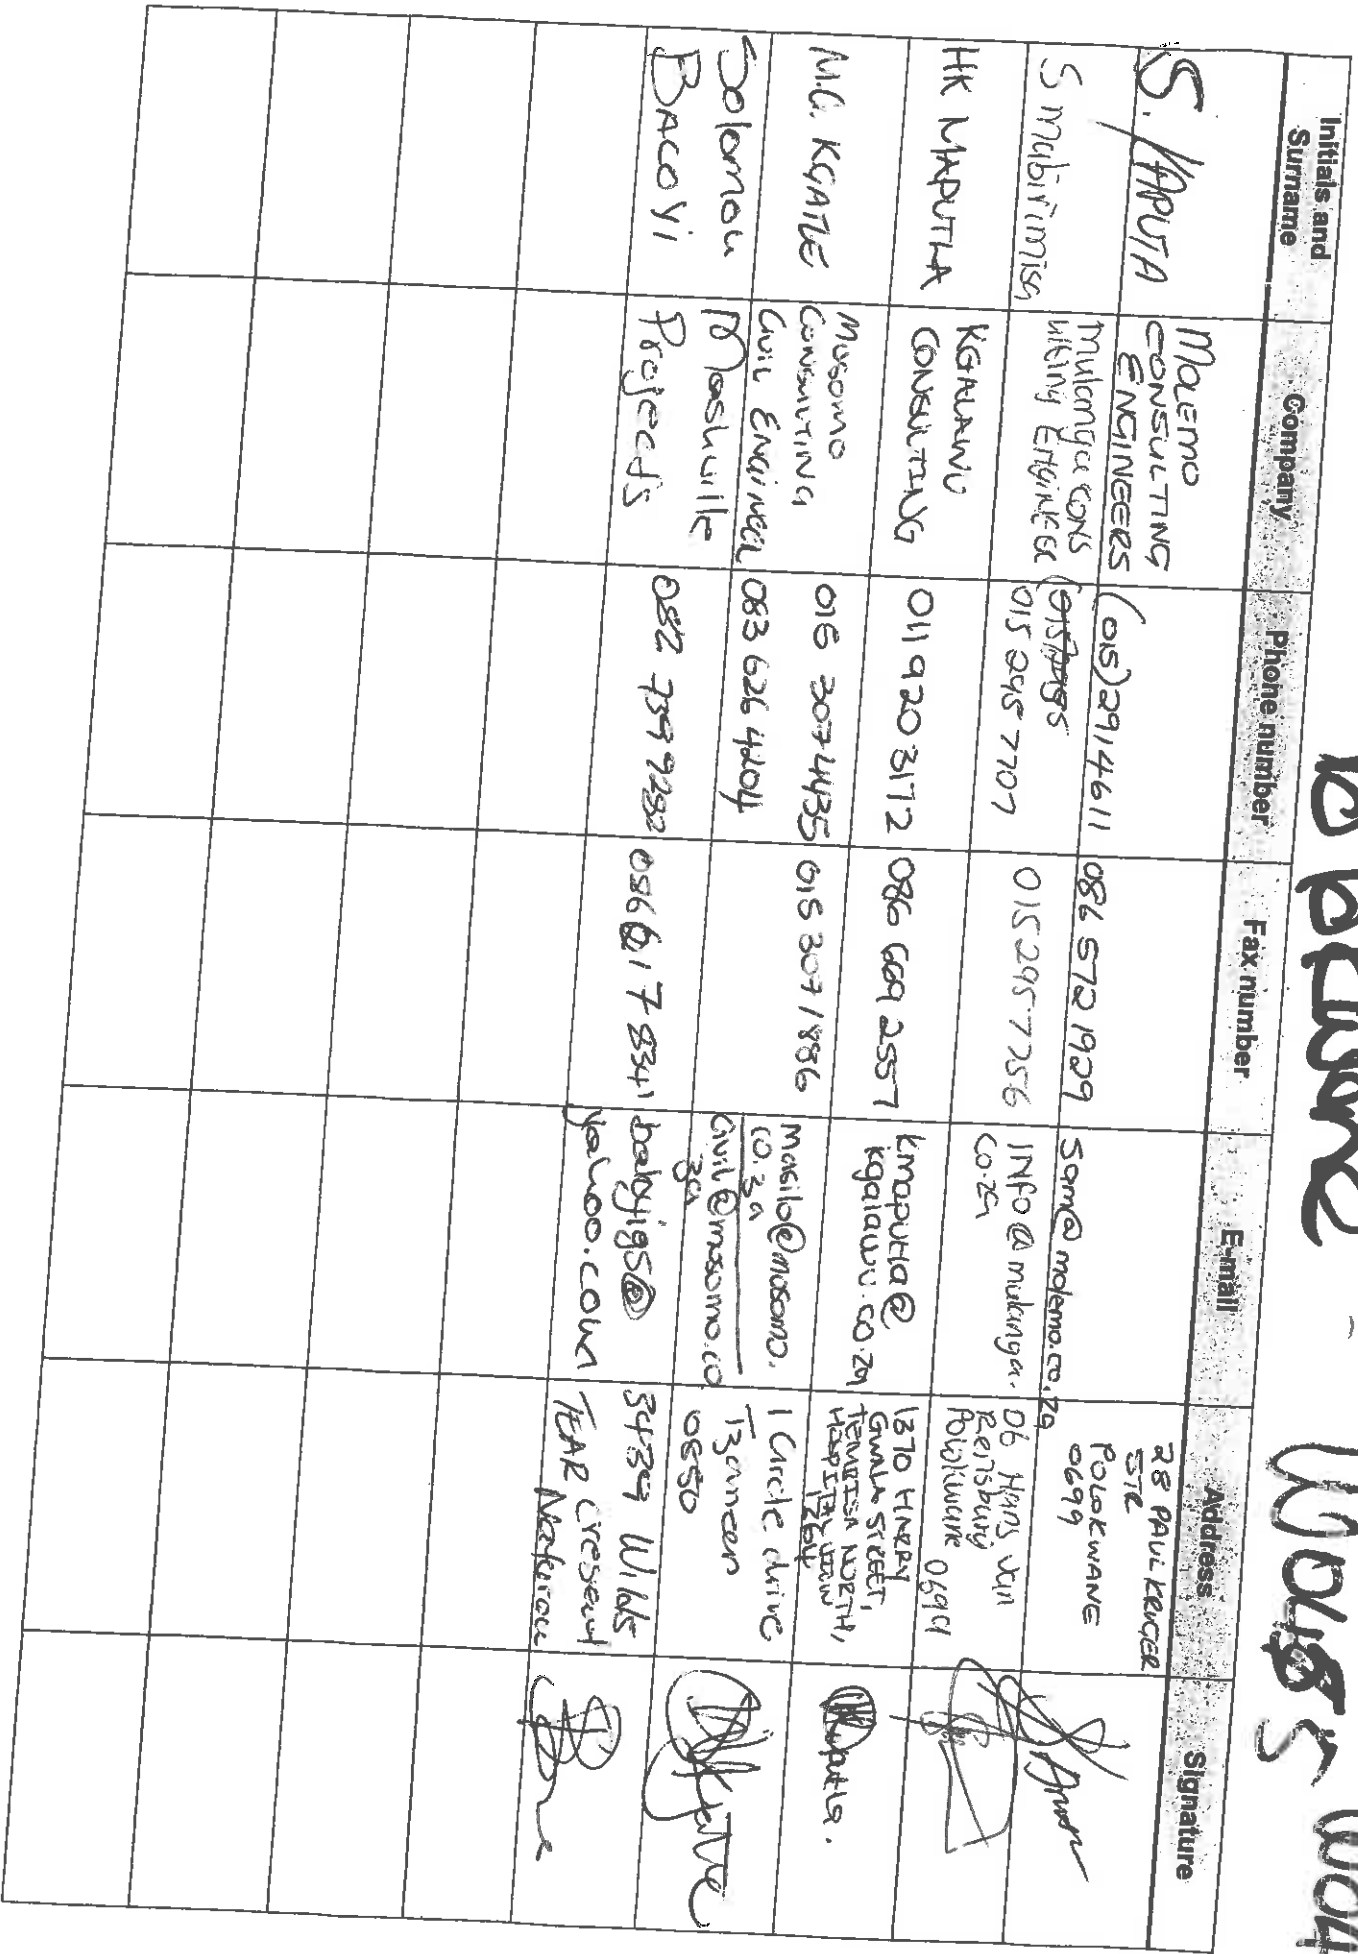 Initials and Surname Company Phone number Fax number E-mail Address Signature
S. MAPUTA
MOLEMO
CONSULTING
ENGINEERS
(015) 291 4611
086 572 1929
sam@molemo.co.za
28 PAUL KRUGER
STR
POLOKWANE
0699
Mulanga cons
ulting Engineer
015 295 7707
015 295 7256
INFO@mulanga.
co.za
06 Hans van
Rensburg
Polokwane 0699
HK MAPUTLA
KGALAWU
CONSULTING
011 920 3172
086 669 2557
kmaputla@
kgalawu.co.za
1370 HARRY
GWALA STREET,
TEMBISA NORTH,
HOSPITAL VIEW
M.G. KGATLE
Mosomo
Consulting
Civil Engineer
015 307 4435
083 626 4204
015 307 1886
masilo@mosomo.
co.za
civil@mosomo.co
za
1 Circle drive
Tzaneen
0850
Solomon
BACOYI
Mashwile
Projects
082 739 9282
086 617 8341
yahoo.com
3439 Wilds
TEAR Cresent